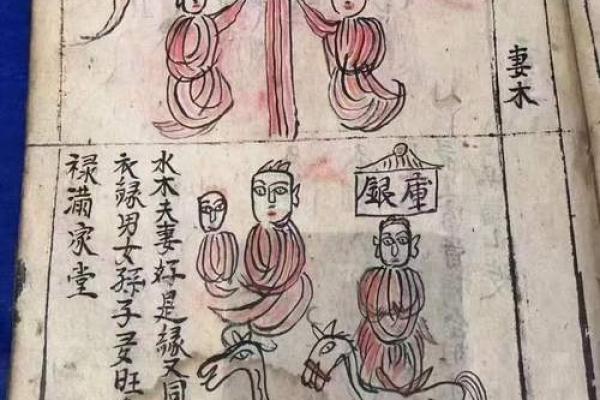 妻木
銀庫
水木夫妻好是緣又同
衣録男女孫子旺
禄滿家堂